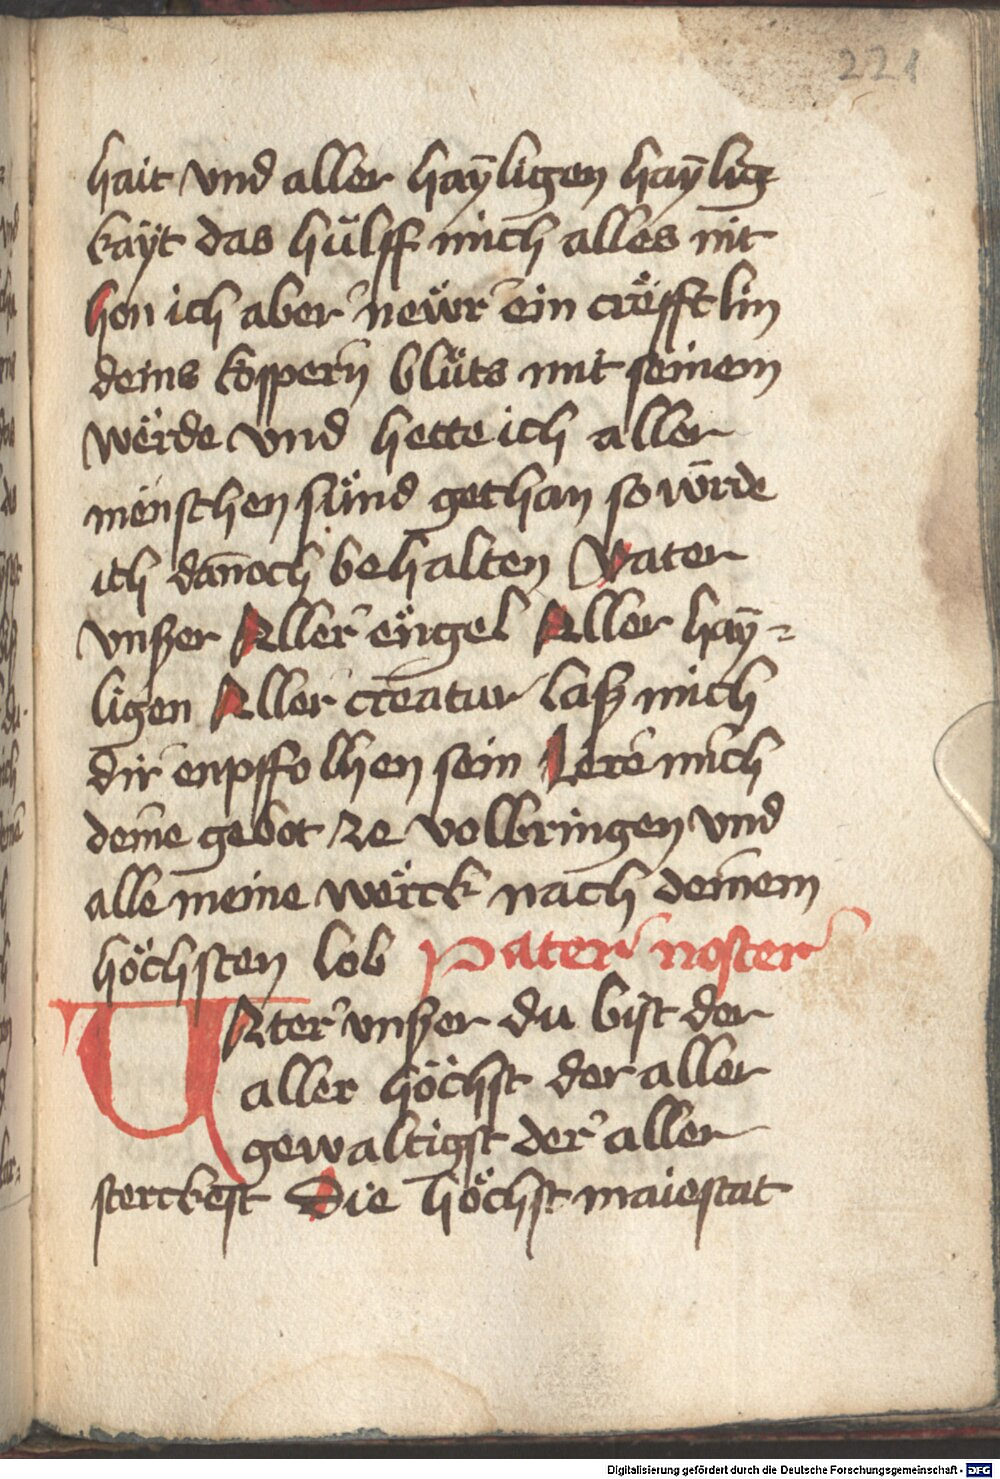 221
hait vnd aller haÿligen haÿlig
kaÿt das hülff mich alles nit
hon ich aber newr ein crëfftlin
deins kopperñ blüts mit seinem
wërde vnd hette ich aller
menschen sünd gethan so würde
ich dañoch behalten Vater
vnßer Aller engel Aller haÿ-
ligen Aller creatur laß mich
dir enpffolhen sein Lere mich
deine gebot ze volbringen vnd
alle meine wërck nach deinem
höchsten lob Pater noster
VAter vnßer du bist der
aller höchst der aller
gewaltigst der aller
sterckest Die höchst maiestat
Digitalisierung gefördert durch die Deutsche Forschungsgemeinschaft - DFG